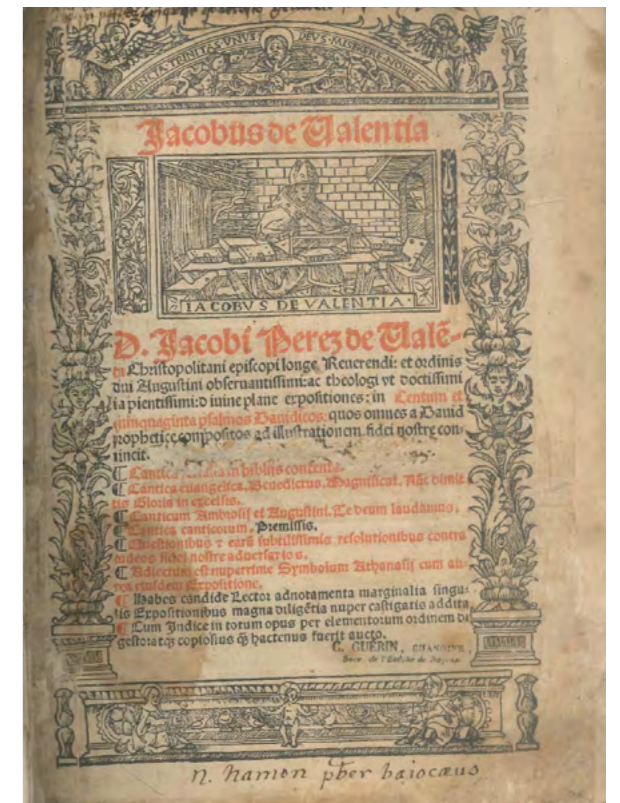 SANCTA TRINITAS VNVS DEVS MISERERE NOBIS
Jacobus de Ualentia
IACOBVS DE VALENTIA
D. Jacobi Perez de Ualē-
Christopolitani episcopi longe Reuerendi: et ordinis
diui Augustini obseruantissimi: ac theologi vt doctissimi
ia pientissimi: d iuine plane expositiones: in Centum et
quinquaginta psalmos Dauidicos: quos omnes a Dauid
prophetice compositos ad illustrationem fidei nostre con-
uincit.
¶ Cantica in biblijs contenta.
¶ Cantica euangelica. Benedictus. Magnificat. Nūc dimit
tis Gloria in excelsis.
¶ Canticum Ambrosij et Augustini. Te deum laudamus.
¶ Cantica canticorum. Premissis.
¶ Questionibus ⁊ earū subtilissimis resolutionibus contra
iudeos fidei nostre aduersarios.
¶ Adiectum est nuperrime Symbolum Athanasij cum au-
rea eiusdem Expositione.
¶ Habes candide Lector adnotamenta marginalia singu-
lis Expositionibus magna diligētia nuper castigatis addita
¶ Cum Indice in totum opus per elementorum ordinem di
gestoratqꝫ copiosius qꝫ hactenus fuerit aucto.
G. GUÉRIN, CHANOINE,
Secr. de l'Evêché de
n. hamon pbr baiocæus